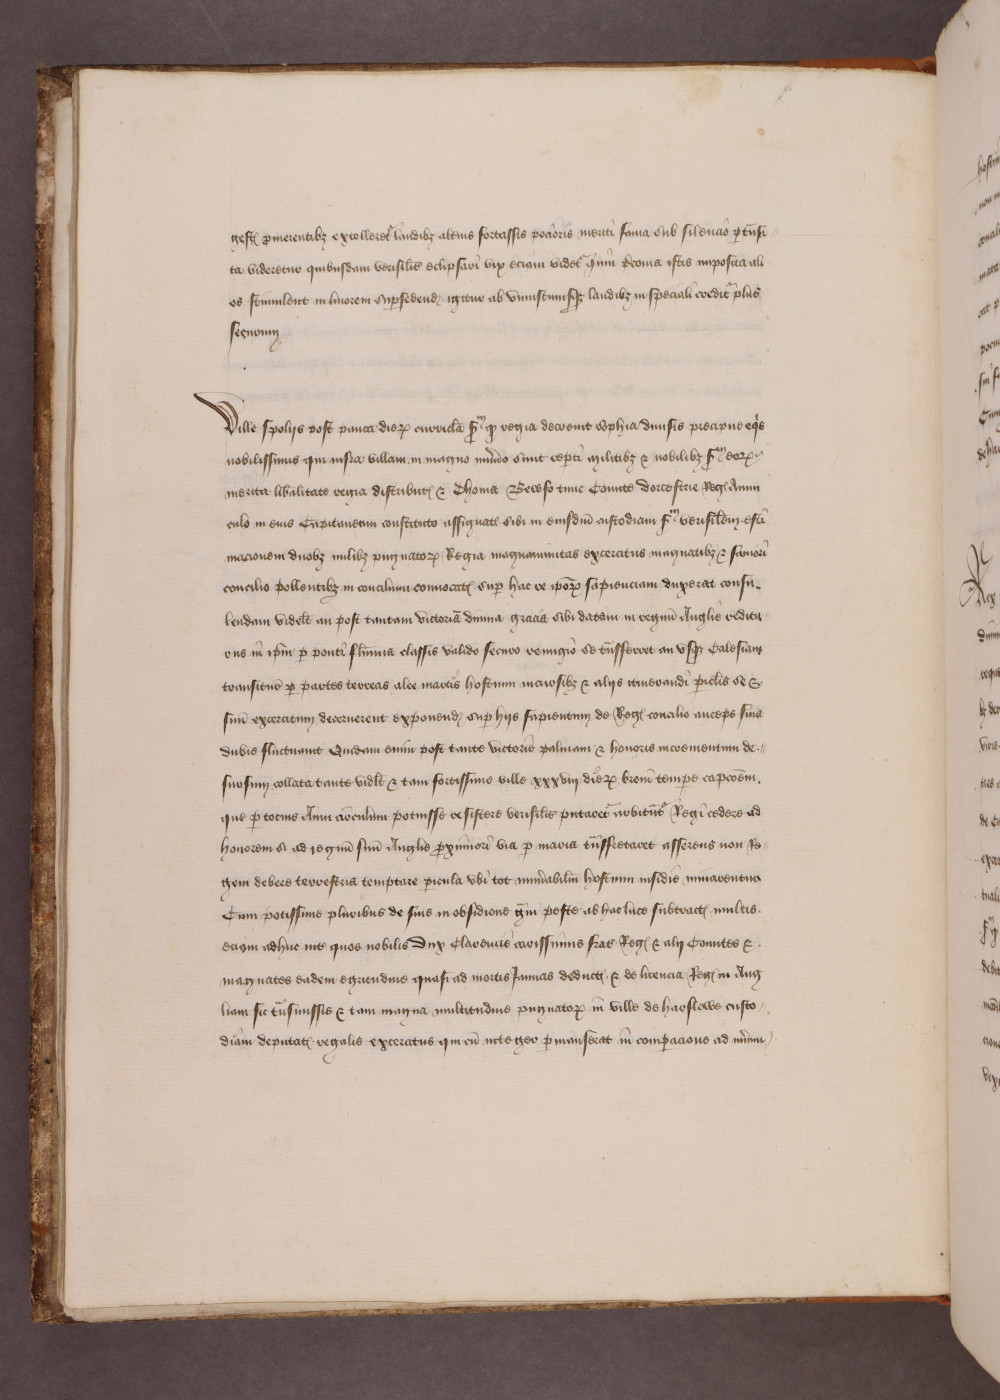 gest promerentibz extolleret laudibz alterius fortassis pocioris meriti fama sub silencio ptransi
ta videretur quibusdam verisilit eclipsari vix eciam videt qui preconia istis imposita ali
os stimulent in liuorem supsedend igitur ab vniuscuiusqz laudibz in speciali credit plus
securum
Ville spolijs post pauca dierz curricla scdm qd regia decreuit sophia diuisis precipue eqis
nobilissimis qui infra villam in magno numero sunt repti militibz & nobilibz scdm eorz
merita libalitate regia distribut & Thoma Beeofo tunc Comite dorcestrie Reg Auun
culo in eius Capitaneum constituto assignat sibi in eiusdem custodiam scdm verisilem esti
macionem duobz milibz pugnatorz Regia magnanimitas excercitus magnatibz & saniori
concilio pollentibz in concilium conuocat sup hac re iporz sapienciam duxerat consu
lendam videlt an post tantam victoriam diuina gracia sibi datam in regnum Anglie reditu
rus in ipm p ponti flumina classis valido securo remigio se transferret an vsqz Calesiam
transitur p partes terreas alee martis hostium incursibz & alijs itinerandi piclis se &
suum excercitum decreuerent exponend sup hijs sapientum de Reg concilio anceps suia
dubie fluctuauit Quidam enim post tante victorie palmam & honoris incrementum de
sursum collata tante videlt & tam fortissime ville xxxvij dierz breui tempe capcoem
que p tocius Anni circulum potuisse resistere verisilit putaret arbitrant Regi cedere ad
honorem si ad regnum suum Anglie pximiori via p maria transfretaret asserens non Re
gem debere terrestria temptare picula vbi tot innumabilium hostium insidie minarentur
Cum potissime pluribus de suis in obsidione graui peste ab hac luce subtract multis
eciam adhuc int quos nobilis Dux Clarencie carissimus frater Reg & alij Comites &
magnates eadem egritudine quasi ad mortis Januas deduct & de licencia Reg in Ang
liam sic transmissis & tam magna multitudine pugnatorz in ville de harflewe custo
diam deputat regalis excercitus qui cum integer pmanserat in compacione ad